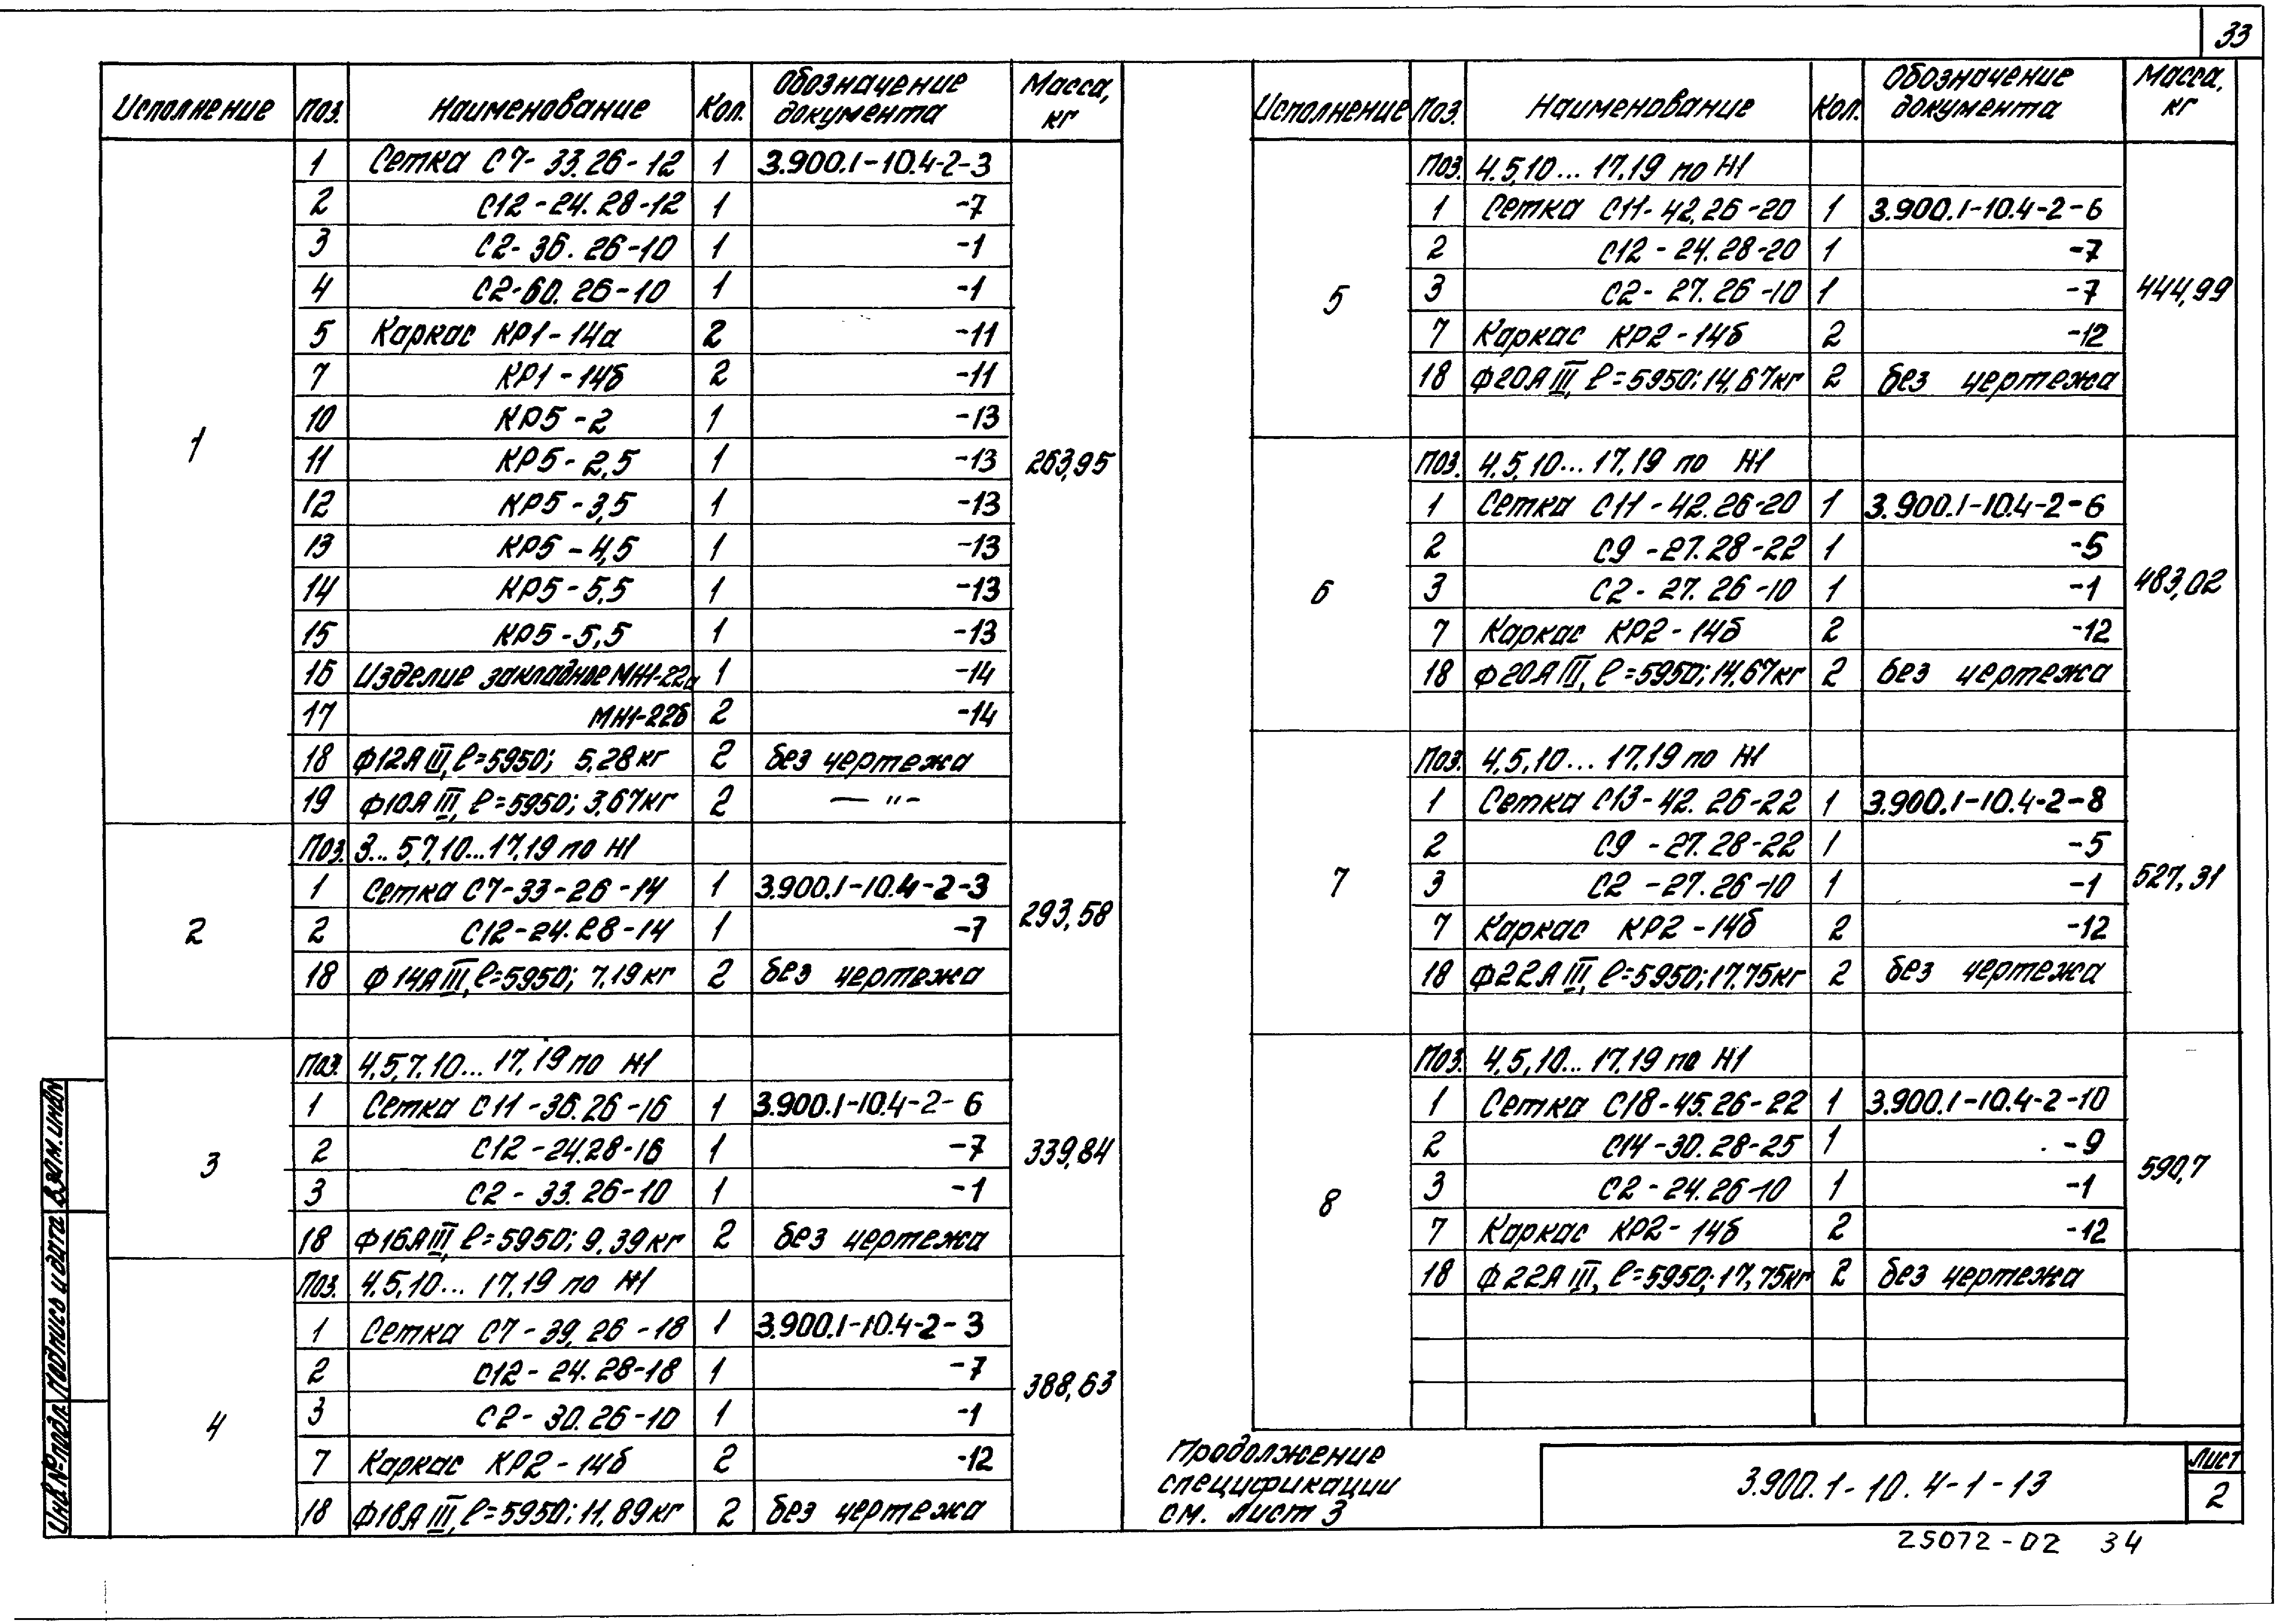 33
Исполнение Поз. Наименование Кол. Обозначение документа Масса, кг
1 263,95
1 Сетка С7-33.26-12 1 3.900.1-10.4-2-3
2 С12-24.28-12 1 -7
3 С2-36.26-10 1 -1
4 С2-60.26-10 1 -1
5 Каркас КР1-14а 2 -11
7 КР1-14б 2 -11
10 КР5-2 1 -13
11 КР5-2,5 1 -13
12 КР5-3,5 1 -13
13 КР5-4,5 1 -13
14 КР5-5,5 1 -13
15 КР5-5,5 1 -13
16 Изделие закладное МН1-22а 1 -14
17 МН1-22б 2 -14
18 Ф12АIII, ℓ=5950; 5,28кг 2 без чертежа
19 Ф10АIII, ℓ=5950; 3,67кг 2 — " -
2 293,58
Поз. 3...5,7,10...17,19 по И1
1 Сетка С7-33-26-14 1 3.900.1-10.4-2-3
2 С12-24.28-14 1 -7
18 Ф14АIII, ℓ=5950; 7,19кг 2 без чертежа
3 339,84
Поз. 4,5,7,10...17,19 по И1
1 Сетка С11-36.26-16 1 3.900.1-10.4-2-6
2 С12-24.28-16 1 -7
3 С2-33.26-10 1 -1
18 Ф16АIII, ℓ=5950; 9,39кг 2 без чертежа
4 388,63
Поз. 4,5,10...17,19 по И1
1 Сетка С7-39.26-18 1 3.900.1-10.4-2-3
2 С12-24.28-18 1 -7
3 С2-30.26-10 1 -1
7 Каркас КР2-14б 2 -12
18 Ф18АIII, ℓ=5950; 11,89кг 2 без чертежа
Исполнение Поз. Наименование Кол. Обозначение документа Масса, кг
5 444,99
Поз. 4,5,10...17,19 по И1
1 Сетка С11-42.26-20 1 3.900.1-10.4-2-6
2 С12-24.28-20 1 -7
3 С2-27.26-10 1 -7
7 Каркас КР2-14б 2 -12
18 Ф20АIII, ℓ=5950; 14,67кг 2 без чертежа
6 483,02
Поз. 4,5,10...17,19 по И1
1 Сетка С11-42.26-20 1 3.900.1-10.4-2-6
2 С9-27.28-22 1 -5
3 С2-27.26-10 1 -1
7 Каркас КР2-14б 2 -12
18 Ф20АIII, ℓ=5950; 14,67кг 2 без чертежа
7 527,31
Поз. 4,5,10...17,19 по И1
1 Сетка С13-42.26-22 1 3.900.1-10.4-2-8
2 С9-27.28-22 1 -5
3 С2-27.26-10 1 -1
7 Каркас КР2-14б 2 -12
18 Ф22АIII, ℓ=5950; 17,75кг 2 без чертежа
8 590,7
Поз. 4,5,10...17,19 по И1
1 Сетка С18-45.26-22 1 3.900.1-10.4-2-10
2 С14-30.28-25 1 -9
3 С2-24.26-10 1 -1
7 Каркас КР2-14б 2 -12
18 Ф22АIII, ℓ=5950; 17,75кг 2 без чертежа
Продолжение
спецификации
см. лист 3
3.900.1-10.4-1-13
Лист
2
25072-02 34
Инв.№подл. Подпись и дата Взам.инв№